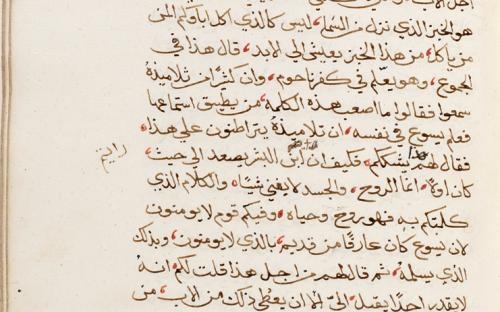 هو الخبز الذي نزل من السما، ليس كالذي اكل اباوكم المن
من ياكل، من هذا الخبز يعيش الي الابد، قال هذا في
المجموع، وهو يعلم في كفرناحوم، وان كثيرًا من تلاميذهُ
سمعوا فقالوا ما اصعب هذه الكلمه، من يطيق استماعها
فعلم يسوع في نفسه، ان تلاميذهُ يتراطنون علي هذا،
فقال لهم هذا يشككم، فكيف ان رايتم ابن البشر يصعد الي حيث
رايتم
كان اولًا، انما الروح، والجسد لا يغني شيًا، والكلام الذي
كلمتكم به فهو روح وحياه، وفيكم قوم لا يومنون
لان يسوع كان عارفًا من قديم، بالذي لا يومنون، وبذلك
الذي يسلمهُ، ثم قال لهم من اجل هذا قلت لكم انه
لا يقدر احدًا يقبل اليّ الا ان يعطي ذلك من الاب، من